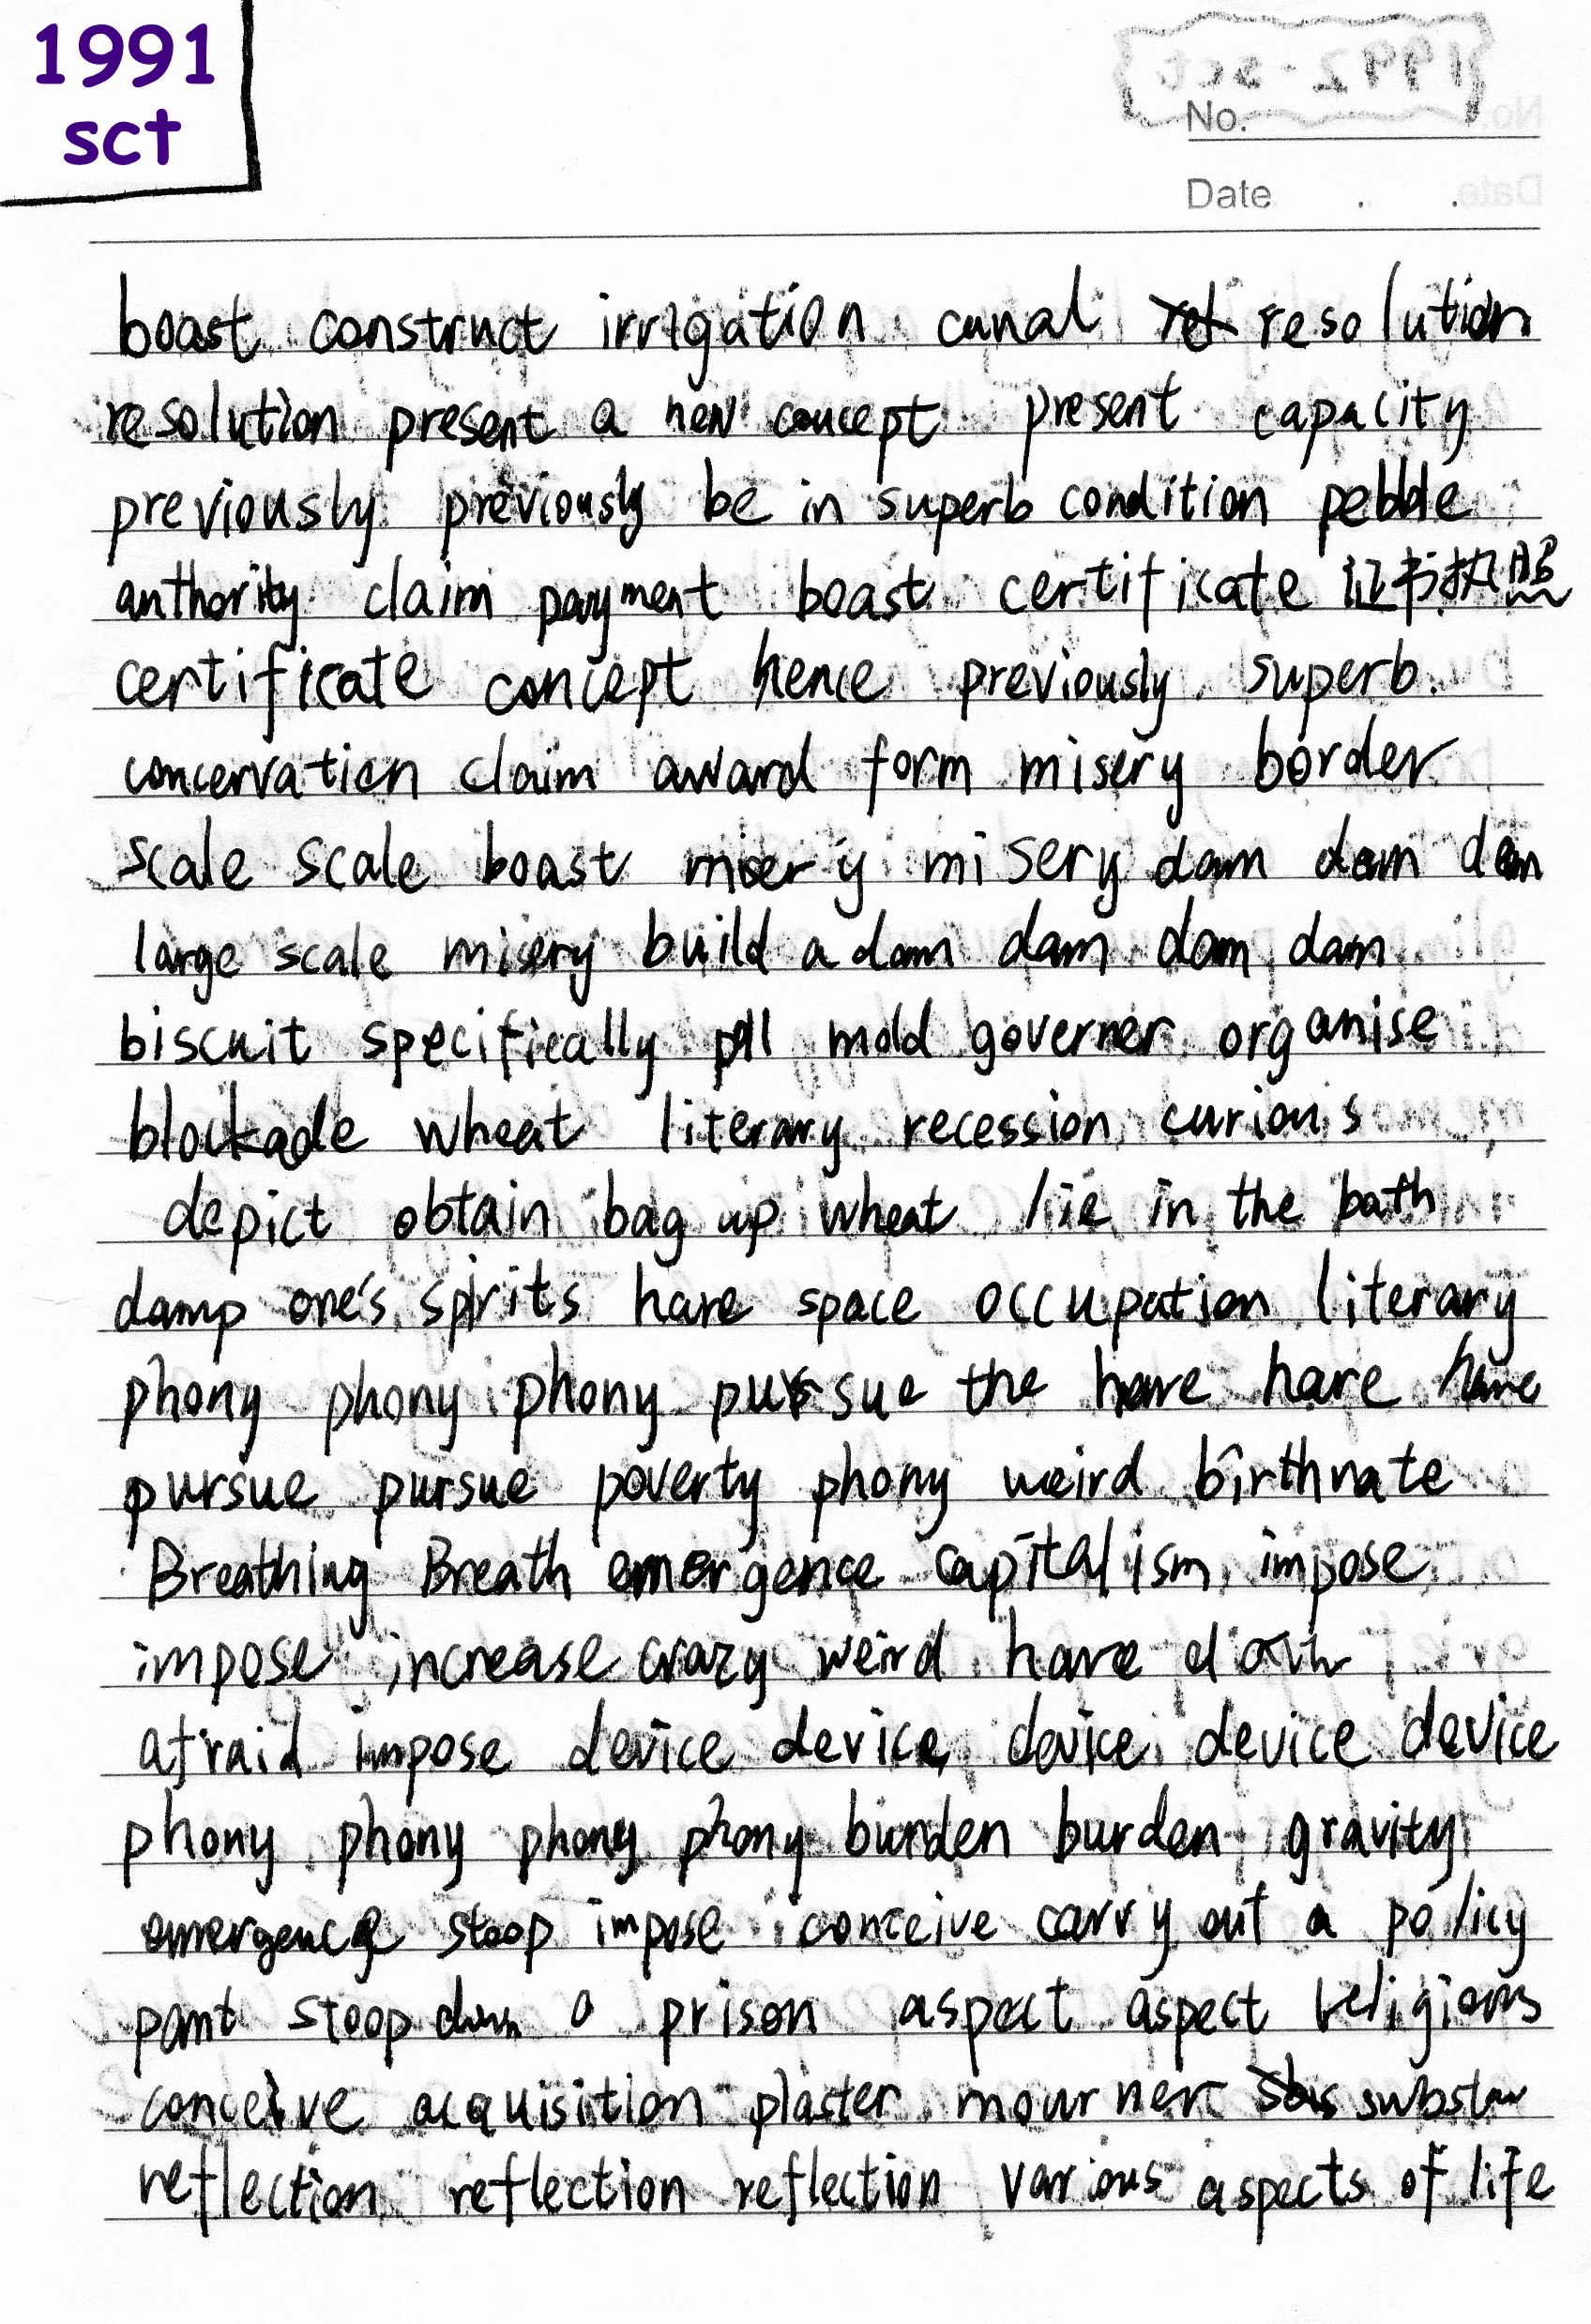 1991
sct
No.
Date . .
boast construct irrigation canal resolution
resolution present a new concept present capacity
previously previously be in superb condition pebble
authority claim payment boast certificate 证书执照
certificate concept hence previously superb.
concervation claim award form misery border
scale scale boast misery misery dam dam dam
large scale misery build a dam dam dam dam
biscuit specifically pill mold governer organise
blockade wheat literary recession curious
depict obtain bag up wheat lie in the bath
damp one's spirits hare space occupation literary
phony phony phony pursue the hare hare hare
pursue pursue poverty phony weird birthrate
Breathing Breath emergence capitalism impose
impose increase crazy weird hare
afraid impose device device device device device
phony phony phony phony burden burden gravity
emergence stoop impose conceive carry out a policy
pant stoop down a prison aspect aspect religions
conceive acquisition plaster mourner
reflection reflection reflection various aspects of life